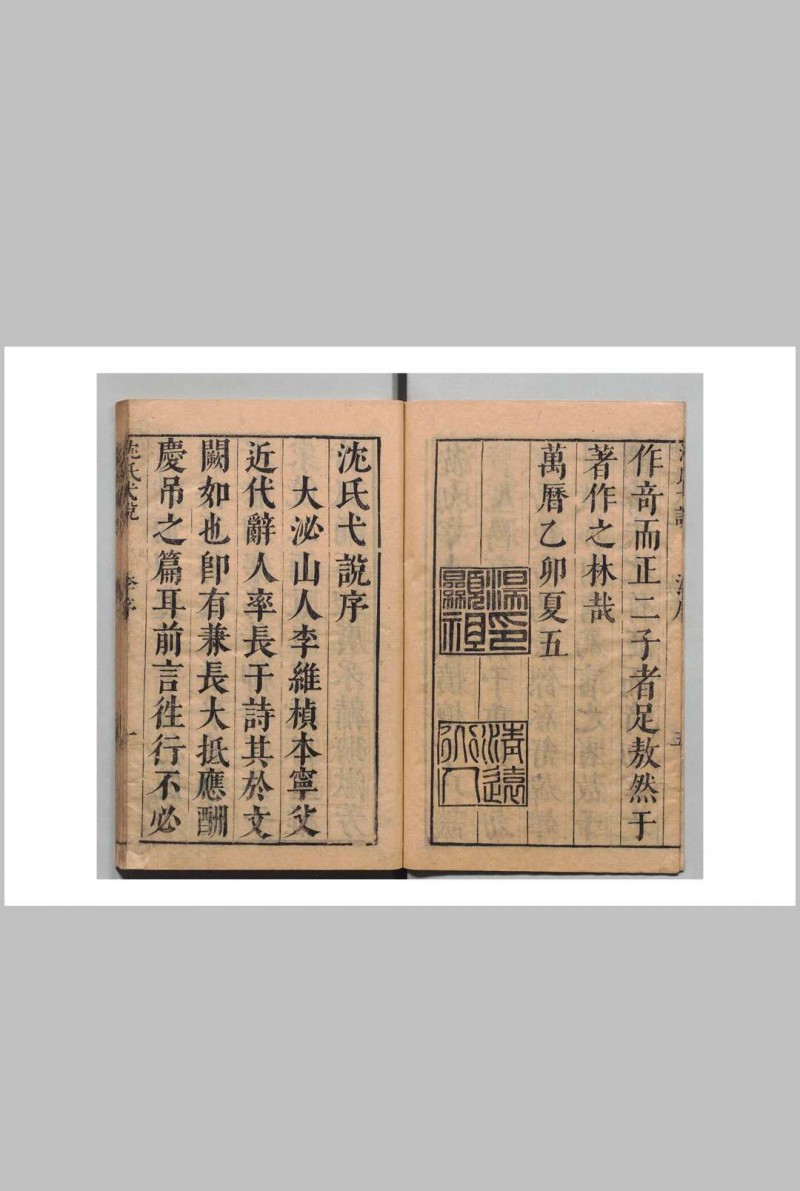 作竒而正二子者足敖然于
著作之林哉
萬曆乙卯夏五
湯印顯祖
清遠道人
沈氏弋說序
大泌山人李維楨本寧父
近代辭人率長于詩其於文
闕如也卽有兼長大抵應酬
慶吊之篇耳前言徃行不必
沈氏弋說
李序
一